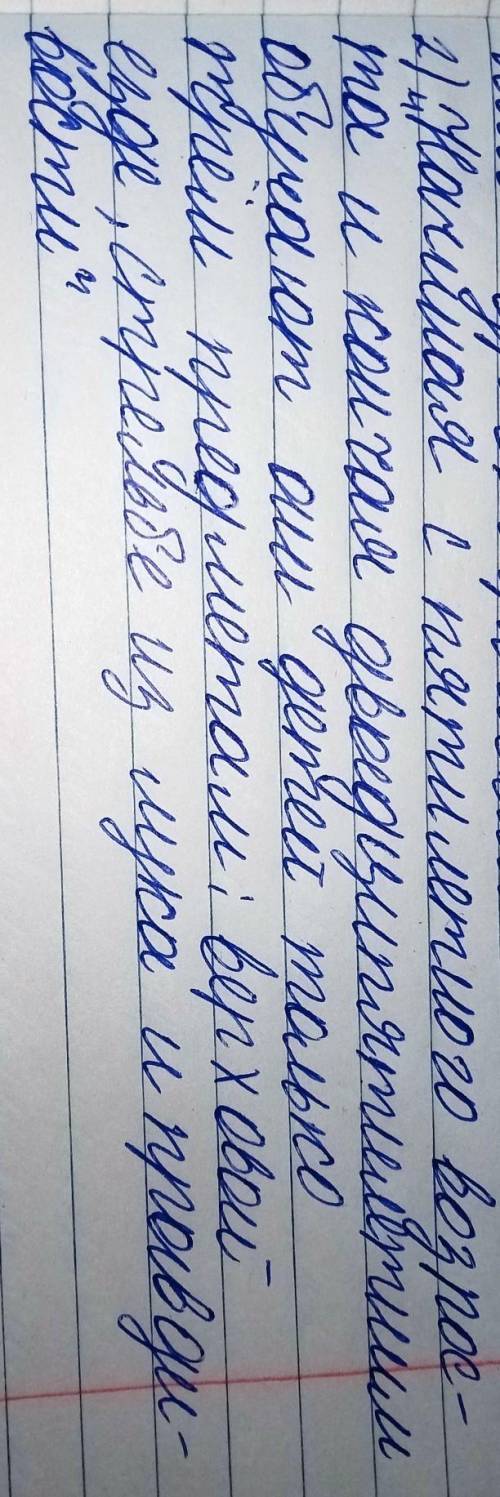 2) „Начиная с пятилетнего возрос-
та и кончая двыедципятилетним
обучают они детей только
трём предметам: верховой
езде, стрельбе из лука и правди-
вости"